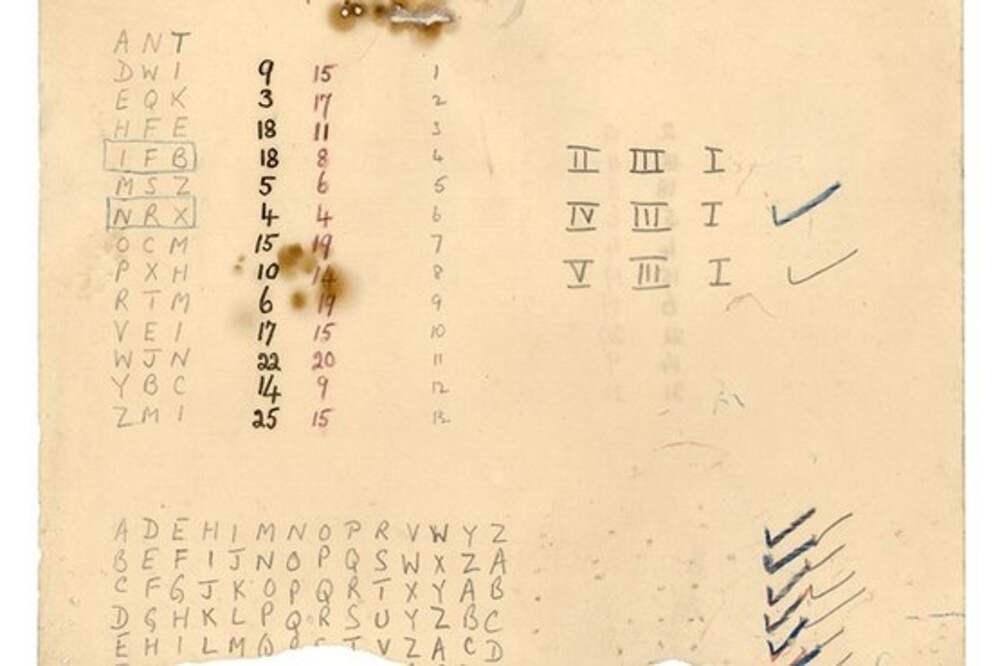 A N T
D W I 9 15 1
E Q K 3 17 2
H F E 18 11 3
I F B 18 8 4 II III I
M S Z 5 6 5
N R X 4 4 6 IV III I ✓
O C M 15 19 7
P X H 10 14 8 V III I ✓
R T M 6 19 9
V E I 17 15 10
W J N 22 20 11
Y B C 14 9 12
Z M I 25 15 13
A D E H I M N O P R V W Y Z
B E F I J N O P Q S W X Z A
C F G J K O P Q R T X Y A B
D G H K L P Q R S U Y Z B C
E H I L M Q T V Z A C D